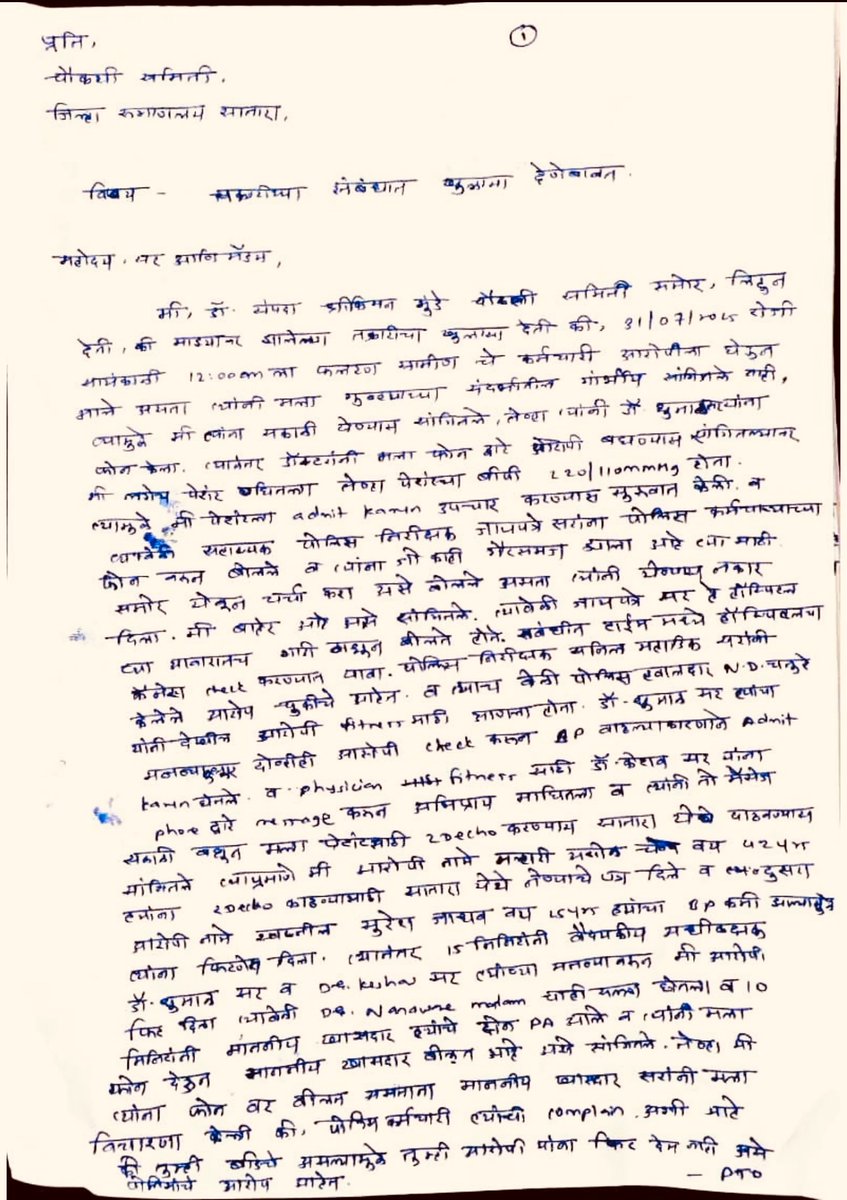 ①
प्रति,
चौकशी समिती,
जिल्हा रुग्णालय सातारा,
विषय - तक्रारीच्या संबंधात खुलासा देणेबाबत.
महोदय, सर आणि मॅडम,
मी, डॉ. संपदा मुंडे चौकशी समिती समोर, लिहून
देती, की माझ्यावर झालेल्या तक्रारीचा खुलासा देती की, 31/07/2025 रोजी
सायंकाळी 12:00am ला फलटण ग्रामीण चे कर्मचारी आरोपीला घेऊन
आले असता त्यांनी मला गुन्ह्याच्या संदर्भातील गांभीर्य सांगितले नाही,
त्यामुळे मी त्यांना सकाळी येण्यास सांगितले, तेव्हा त्यांनी डॉ धुमाळ त्यांना
फोन केला. त्यानंतर डॉक्टरांनी मला फोन द्वारे आरोपी बघण्यास सांगितल्यावर
मी लगेच पेशंट बघितला तेव्हा पेशंटचा बीपी 220/110mmHg होता.
त्यामुळे मी पेशंटला admit करून उपचार करण्यास सुरुवात केली. व
सहाय्यक पोलिस निरीक्षक जायपत्रे सरांना पोलिस कर्मचाऱ्याच्या
फोन वरून बोलले व त्यांना जो काही गैरसमज झाला आहे त्या साठी
समोर येऊन चर्चा करा असे बोलले असता त्यांनी येण्यास नकार
दिला. मी बाहेर आहे असे सांगितले. त्यावेळी जायपत्रे सर हे हॉस्पिटल
च्या आवारातच गाडी काढून बोलत होते. संबंधीत टाईम मध्ये हॉस्पिटलचा
कॅमेरा check करण्यात यावा. पोलिस निरीक्षक अनिल महाडिक सरांनी
केलेले आरोप चुकीचे आहेत. व त्याच वेळी पोलिस हवालदार N.D. चतुरे
यांनी देखील आरोपी fitness साठी आणला होता. डॉ. धुमाळ सर ह्यांचा
दोन्हीही आरोपी check करून BP वाढल्याकारणाने Admit
करून घेतले. व physician fitness साठी डॉ. केशव सर यांना
phone द्वारे message करून अभिप्राय मागितला व त्यांनी तो मॅसेज
सकाळी बघून मला पेशंटसाठी 2Decho करण्यास सातारा येथे पाठवण्यास
सांगितले त्याप्रमाणे मी आरोपी नामे मल्हारी वय 42yr
ह्यांना 2Decho काढण्यासाठी सातारा येथे नेण्याचे पत्र दिले व दुसरा
आरोपी नामे स्वप्नील सुरेश जाधव वय ह्यांचा BP कमी आल्यामुळे
त्यांना फिटनेस दिला. त्यानंतर 15 मिनिटांनी वैद्यकीय अधीक्षक
डॉ. धुमाळ सर व Dr. Keshav सर त्यांच्या वरून मी आरोपी
फिट दिला त्यावेळी Dr. madam चाही सल्ला घेतला व 10
मिनिटांनी माननीय खासदार ह्यांचे दोन PA आले व त्यांनी मला
फोन देऊन माननीय खासदार बोलत आहे असे सांगितले. तेव्हा मी
त्यांना फोन वर बोलत असताना माननीय खासदार सरांनी मला
विचारणा केली की, पोलिस कर्मचारी त्यांची complain अशी आहे
की तुम्ही बीडचे असल्यामुळे तुम्ही आरोपी यांना फिट देत नाही असे
पोलिसांचे आरोप आहेत.
— PTO